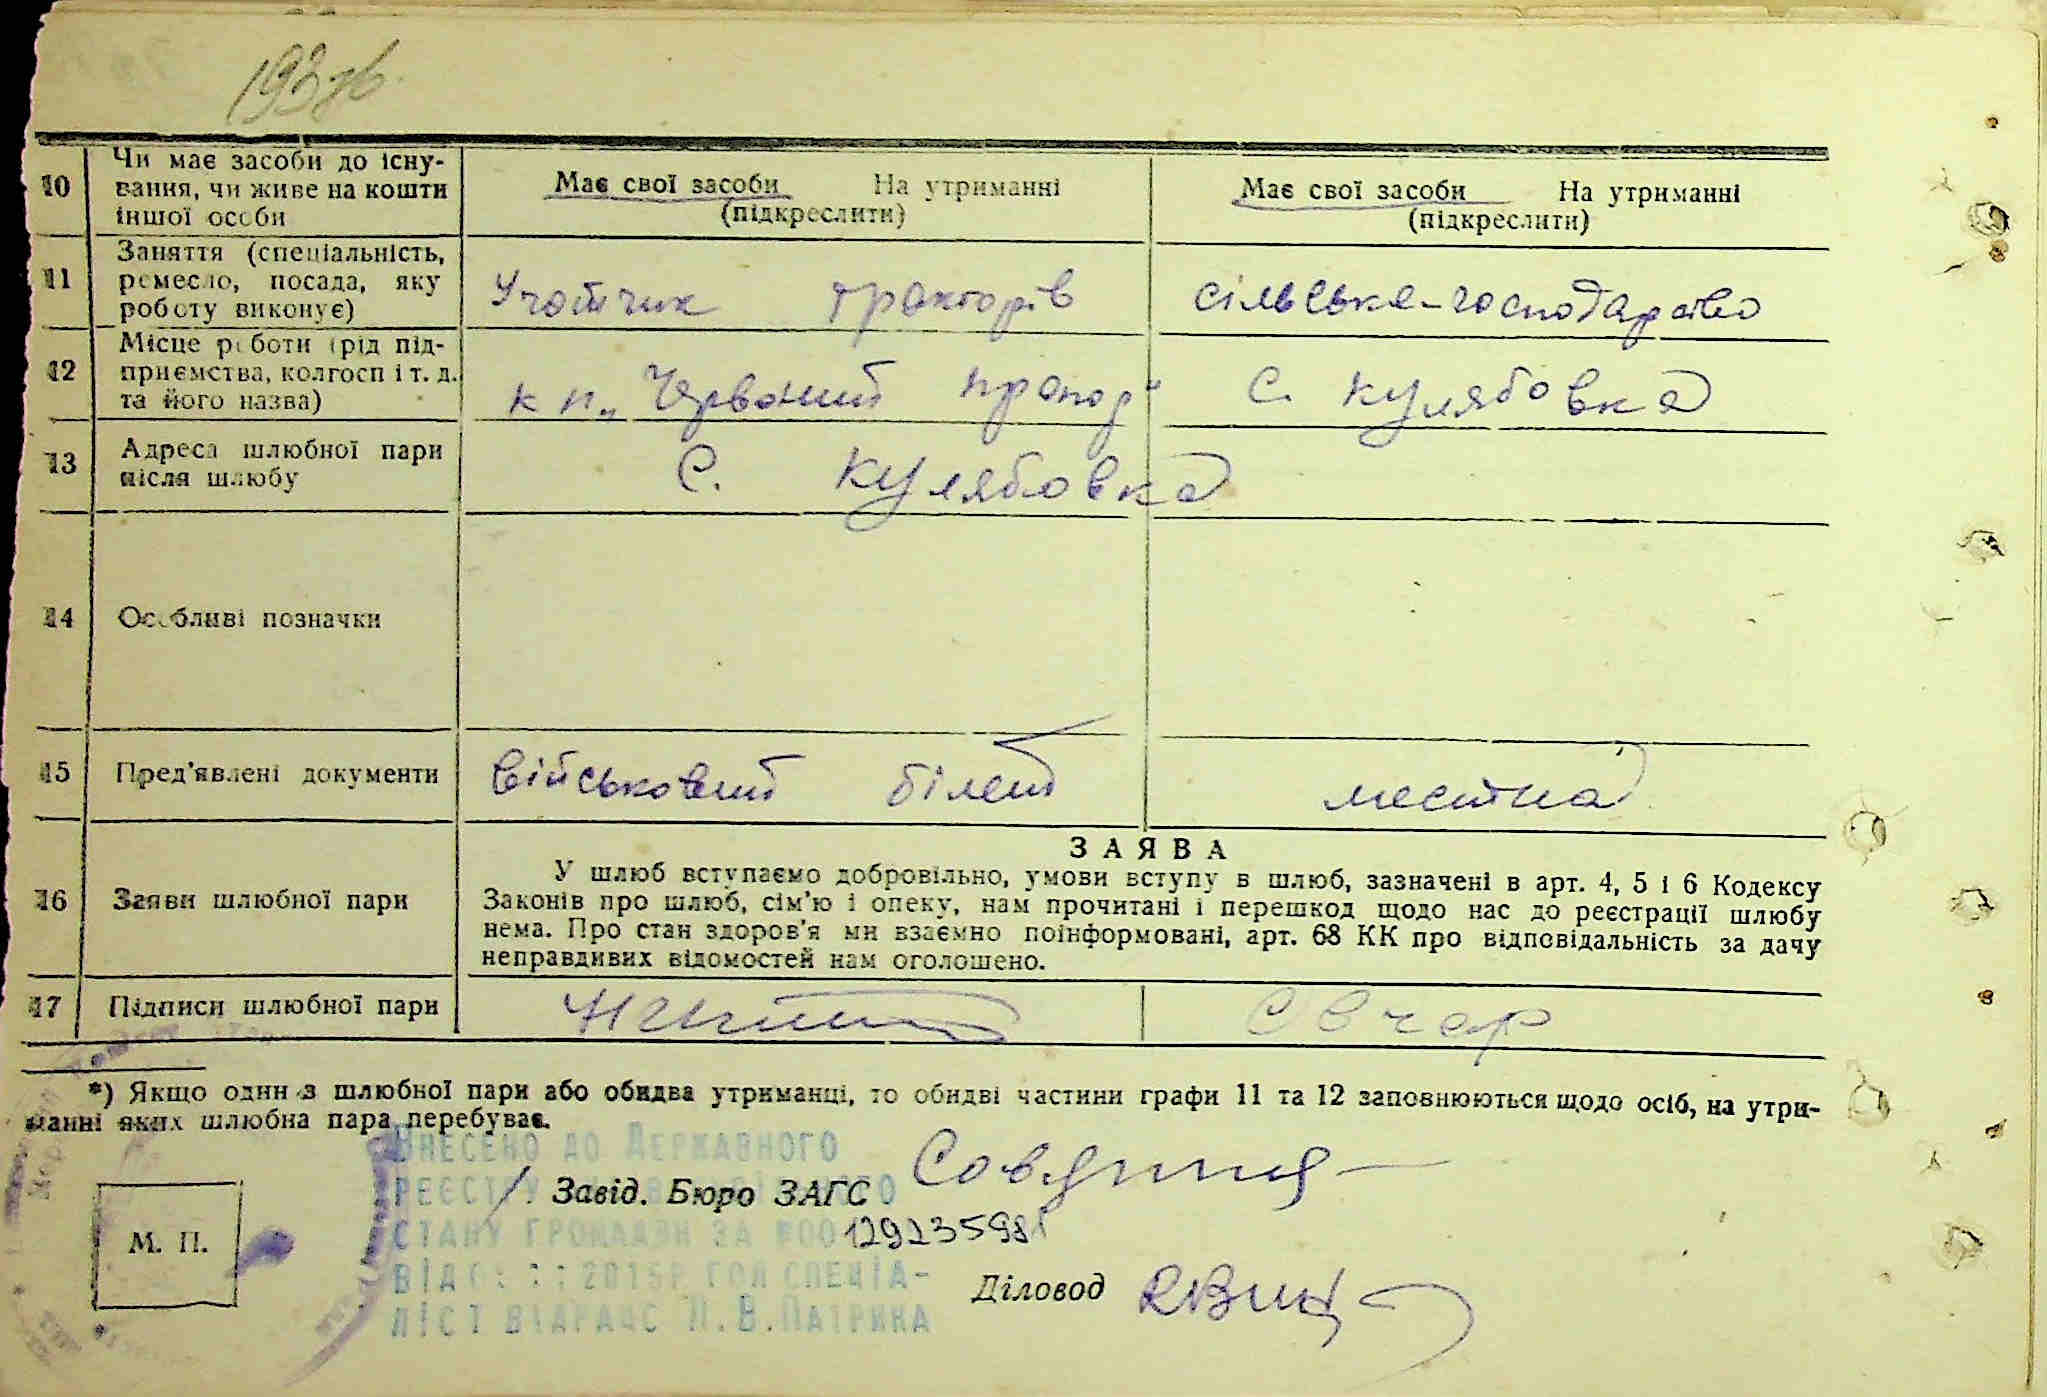 193 зв.
10 Чи має засоби до існу-
вання, чи живе на кошти
іншої особи
Має свої засоби На утриманні
(підкреслити)
Має свої засоби На утриманні
(підкреслити)
11 Заняття (спеціальність,
ремесло, посада, яку
роботу виконує)
Учотчик тракторів
сільське-господарство
12 Місце роботи (рід під-
приємства, колгосп і т. д.
та його назва)
к п „Червоний прапор"
с. Кулябовка
13 Адреса шлюбної пари
після шлюбу
С. Кулябовка
14 Особливі позначки
15 Пред'явлені документи
військовий білет
местна
16 Заяви шлюбної пари
ЗАЯВА
У шлюб вступаємо добровільно, умови вступу в шлюб, зазначені в арт. 4, 5 і 6 Кодексу
Законів про шлюб, сім'ю і опеку, нам прочитані і перешкод щодо нас до реєстрації шлюбу
нема. Про стан здоров'я ми взаємно поінформовані, арт. 68 КК про відповідальність за дачу
неправдивих відомостей нам оголошено.
17 Підписи шлюбної пари
*) Якщо один з шлюбної пари або обидва утриманці, то обидві частини графи 11 та 12 заповнюються щодо осіб, на утри-
манні яких шлюбна пара перебуває.
Внесено до Державного
реєстру
Завід. Бюро ЗАГС
стану громадян за №00
129235981
від 2015р. гол спеціа-
ліст відрацс Л.В.Патрика
М. П.
Діловод